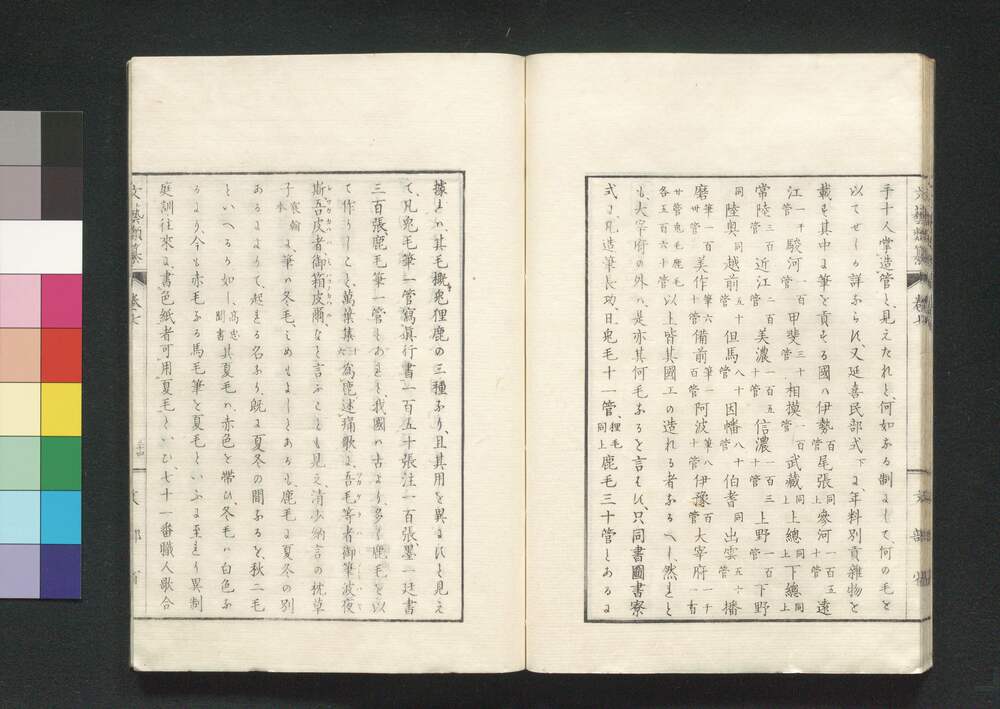 手十人掌造管と、見えたれと、何如なる制にして、何の毛を
以てせしか詳ならす、又延喜民部式下に年料別貢雜物を
載せ其中に筆を貢する國は伊勢一百管尾張同參河一百五十管遠
江一千管駿河一百管甲斐三十管相摸一百管武藏同上上總同上下總同上
常陸三百管近江二百管美濃一百五十管信濃一百三十管上野一百管下野
同陸奥同越前五十管但馬八十管因幡八十管伯耆同出雲五十六管播
磨筆一百卅管美作筆六十管備前筆一百管阿波筆八十管伊豫百管大宰府一千一百
廿管兎毛鹿毛各五百六十管以上皆其國工の造れる者なるへし、然れと
も、大宰府の外は、是亦其何毛なるを言はす、只同書圖書寮
式に、凡造筆長功、日兎毛十一管、狸毛同上鹿毛三十管とあるに
據れは、其毛概兎狸鹿の三種なり、且其用を異にせしと見え
て、凡兎毛筆一管寫眞行書一百五十張注一百張墨一廷書
三百張、鹿毛筆一管ともあれと、我國は古より、多く鹿毛を以
て作りしこと、萬葉集十六爲鹿述痛歌に、吾毛等者御筆波夜
斯、吾皮者、御箱皮爾、なと言ふことも見え、清少納言の枕草
子宸翰本に、筆は冬毛、
あるによりて、起れる名なり、既に夏冬の間なるを、秋二毛
といへるか如し、高忠聞書其夏毛は赤色を帶ひ、冬毛は白色な
るより、今も赤毛なる馬毛筆を夏毛といふに至れり、異制
庭訓往來に、書色紙者可用夏毛といひ、七十一番職人歌合
文藝類纂
卷七
文部省